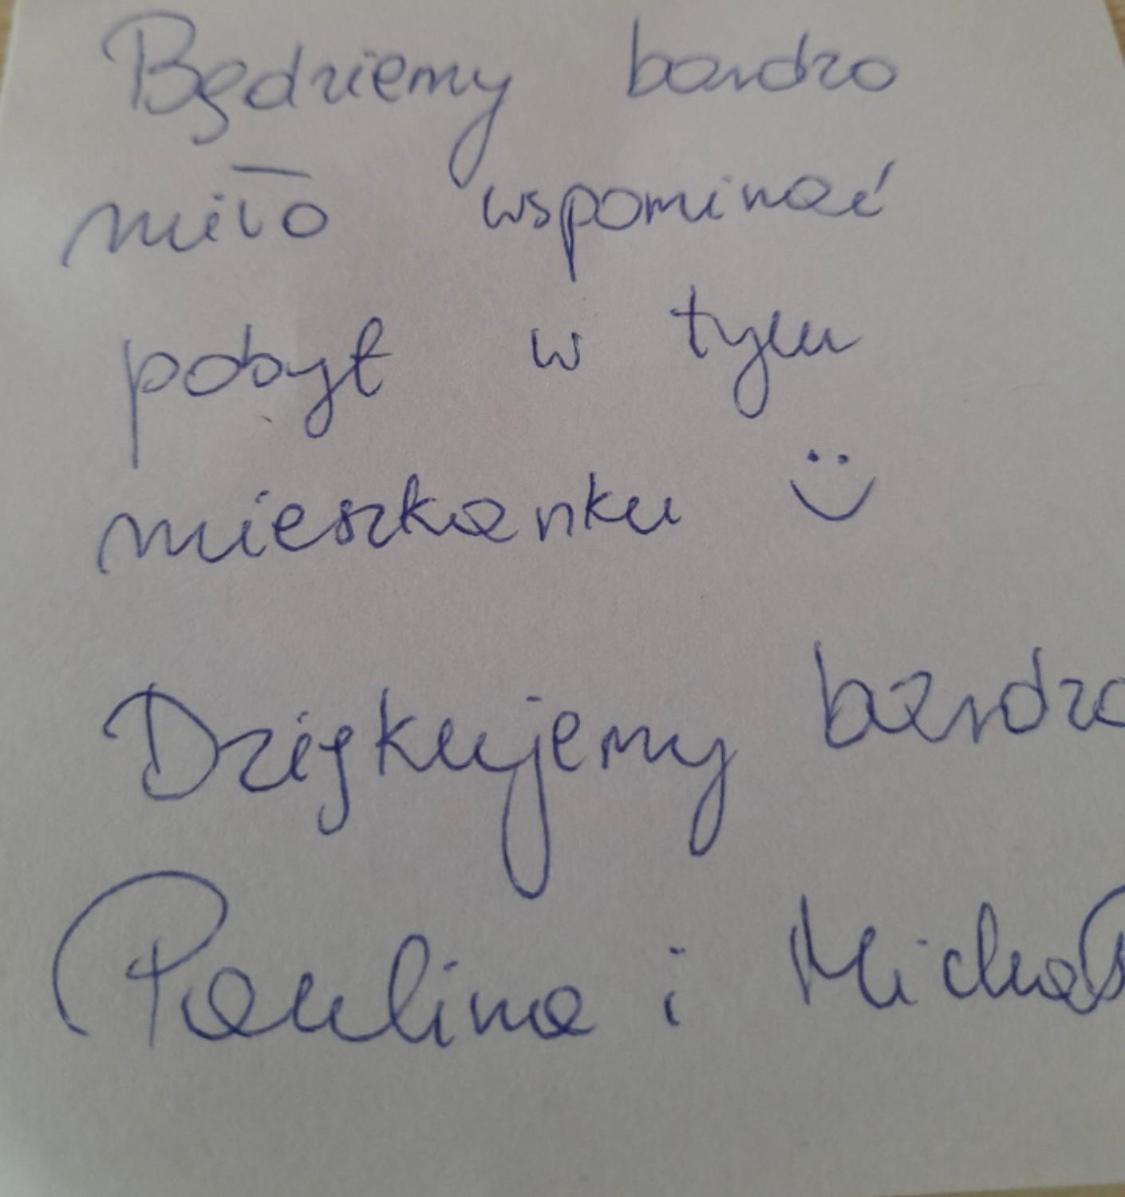 Będziemy bardzo
miło wspominać
pobyt w tym
mieszkanku :)
Dziękujemy bardzo
Paulina i Michał